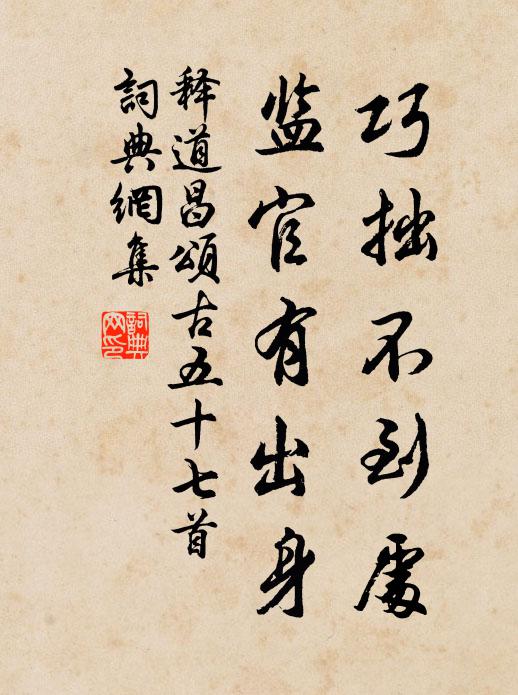 巧拙不到處
监官有出身
释道昌頌古五十七首
詞典網集
詞典
网印